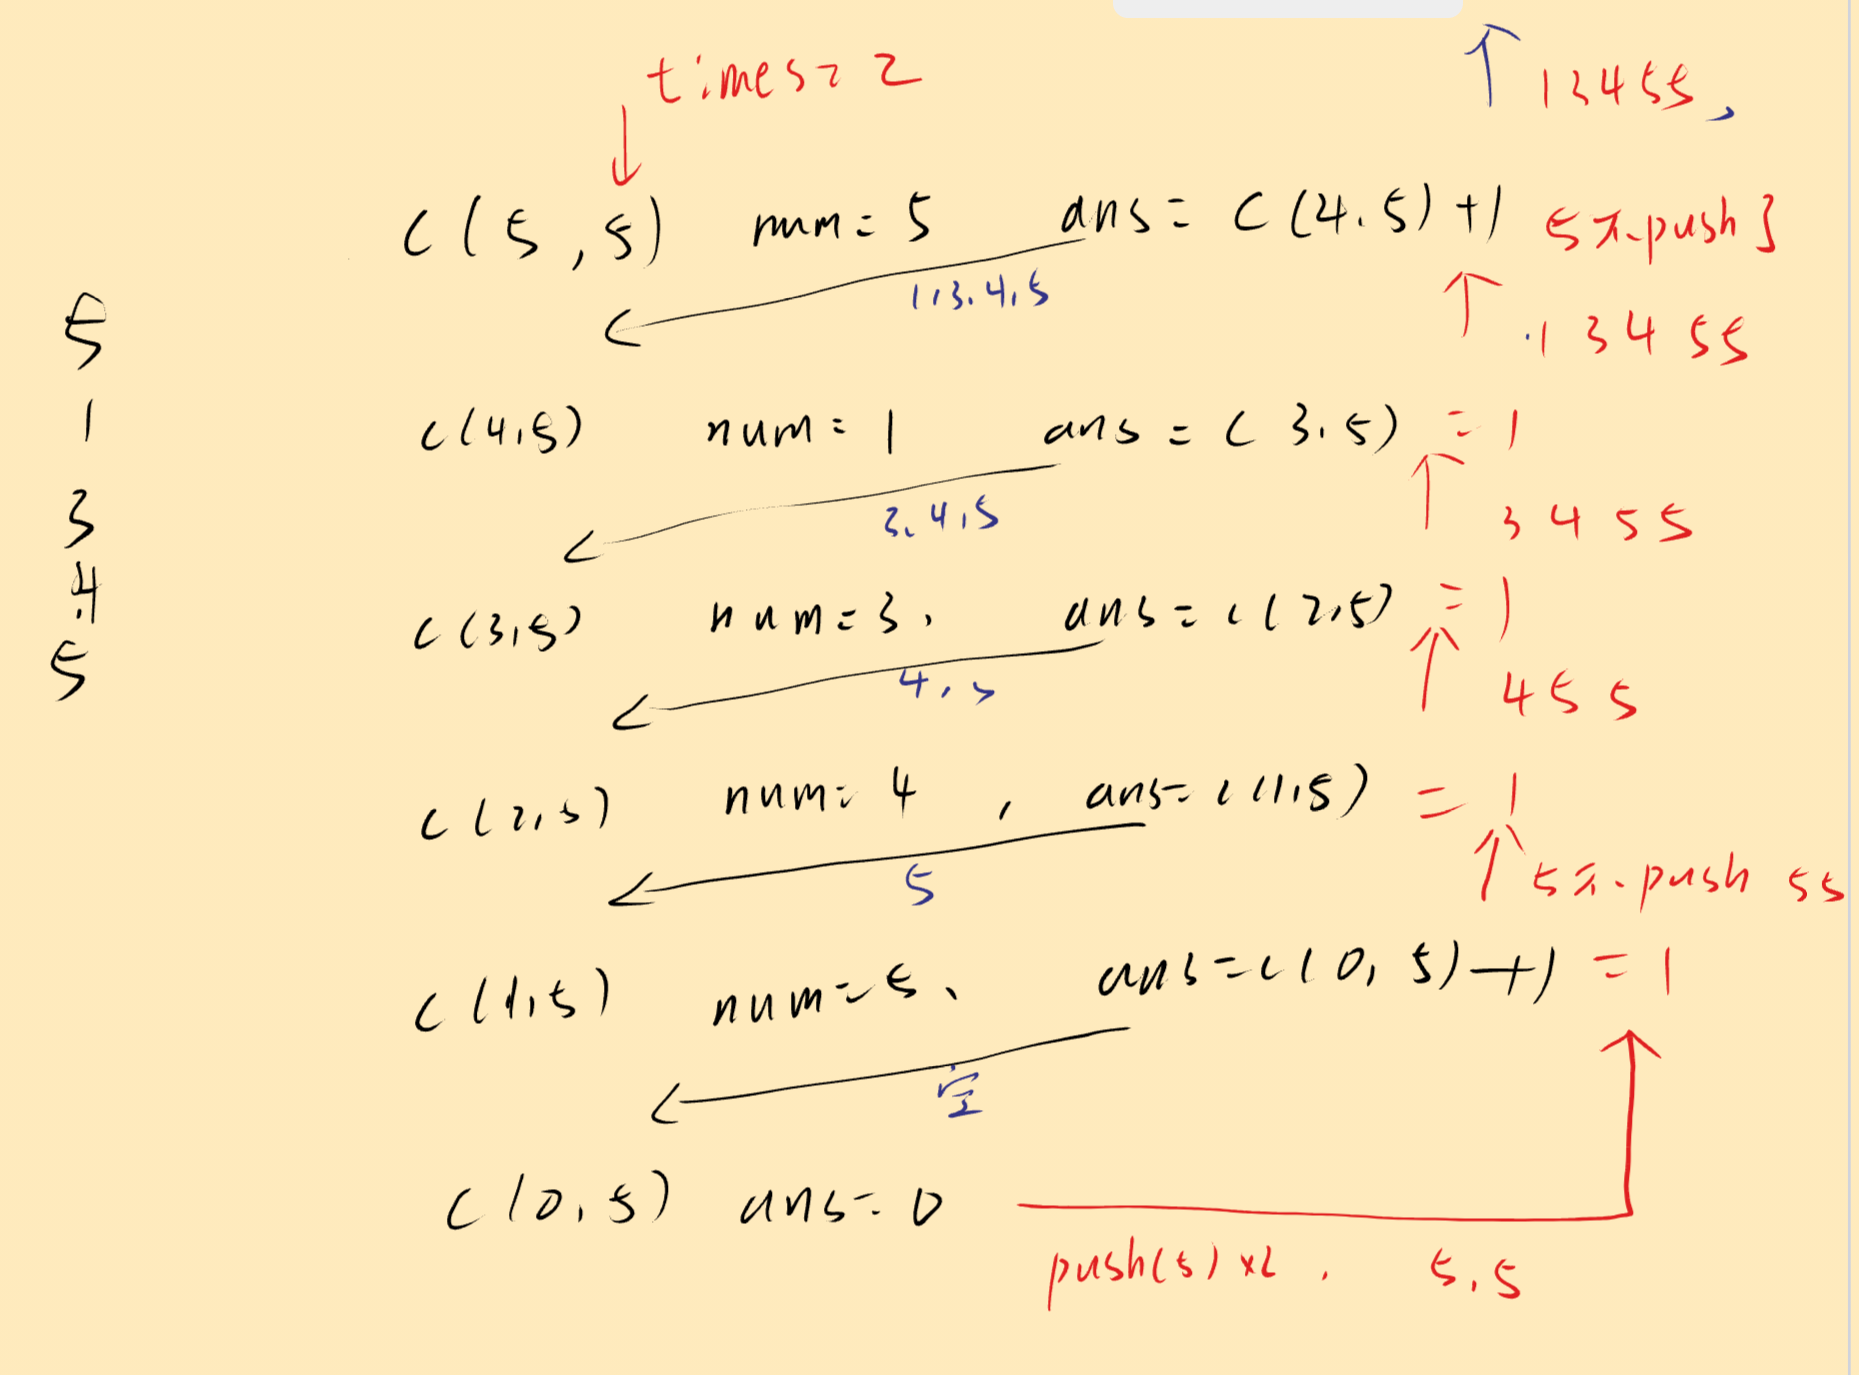 times=2
↑ 13455,
C(5,5) num=5 ans=C(4.5)+1 5不push]
1,3.4,5
.13455
5
1
3
4
5
C(4,5) num=1 ans=C(3.5) =1
3.4,5
3455
C(3,5) num=3, ans=C(2,5) =1
4,5
455
C(2,5) num=4, ans=C(1,5) =1
5
5不push 55
C(1,5) num=5、 ans=C(0,5)+1 =1
空
C(0,5) ans=0
push(5)×2, 5,5